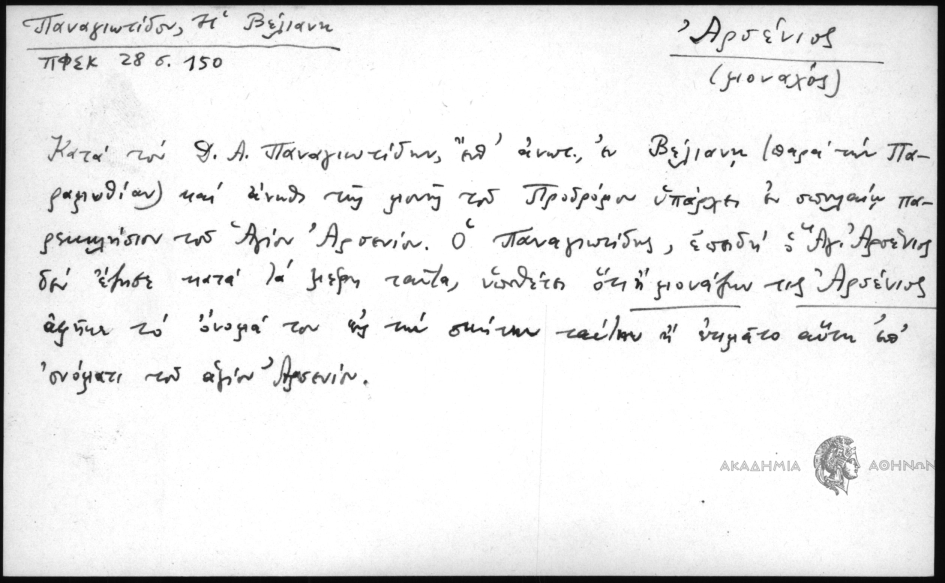 Παναγιωτίδου, Ἡ Βέλιανη
ΠΦΕΚ 28 σ. 150
Ἀρσένιος
(μοναχός)
Κατά τόν Δ. Α. Παναγιωτίδην, ἔνθ' ἀνωτ., ἐν Βέλιανῃ (παρά τήν Πα-
ραμυθίαν) καί ἄνωθι τῆς μονῆς τοῦ Προδρόμου ὑπάρχει ἐν σπηλαίῳ πα-
ρεκκλήσιον τοῦ Ἁγίου Ἀρσενίου. Ὁ Παναγιωτίδης, ἐπειδή ὁ Ἅγι. Ἀρσένιος
δέν ἔζησε κατά τά μέρη ταῦτα, ὑποθέτει ὅτι ἤ μονάζων τις Ἀρσένιος
ἀφῆκε τό ὄνομά του εἰς τήν σκήτην ταύτην ἤ ἐτιμᾶτο αὕτη ἐπ'
ὀνόματι τοῦ ἁγίου Ἀρσενίου.
ΑΚΑΔΗΜΙΑ ΑΘΗΝΩΝ